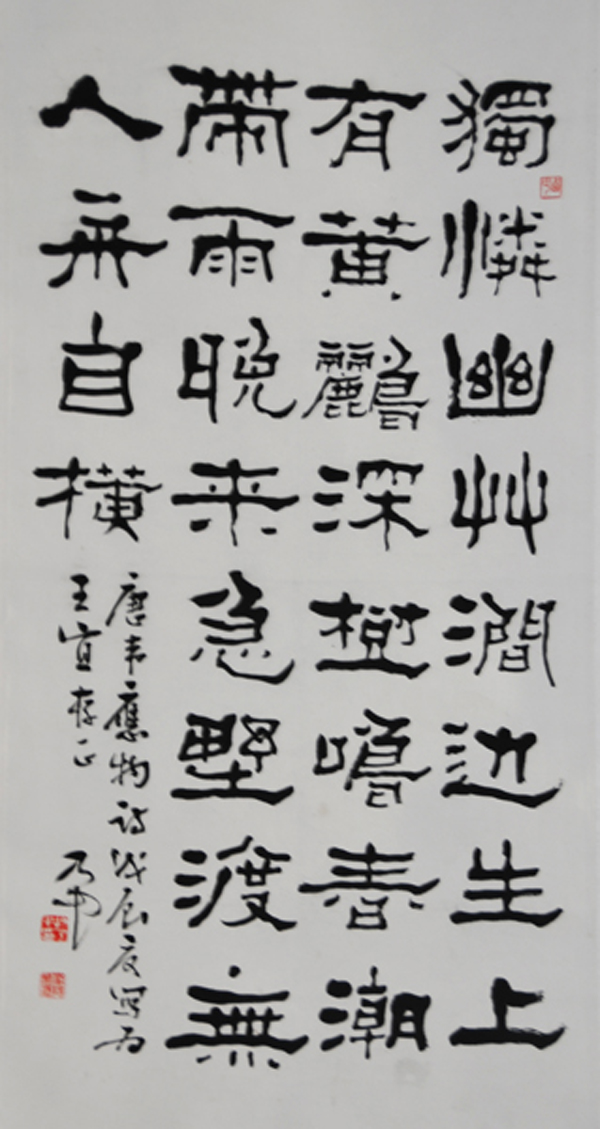 獨憐幽艸澗边生上
有黃鸝深樹鳴春潮
帶雨晚来急墅渡無
人舟自橫
唐韦應物诗戊辰夏写为
王宜存正
乃中